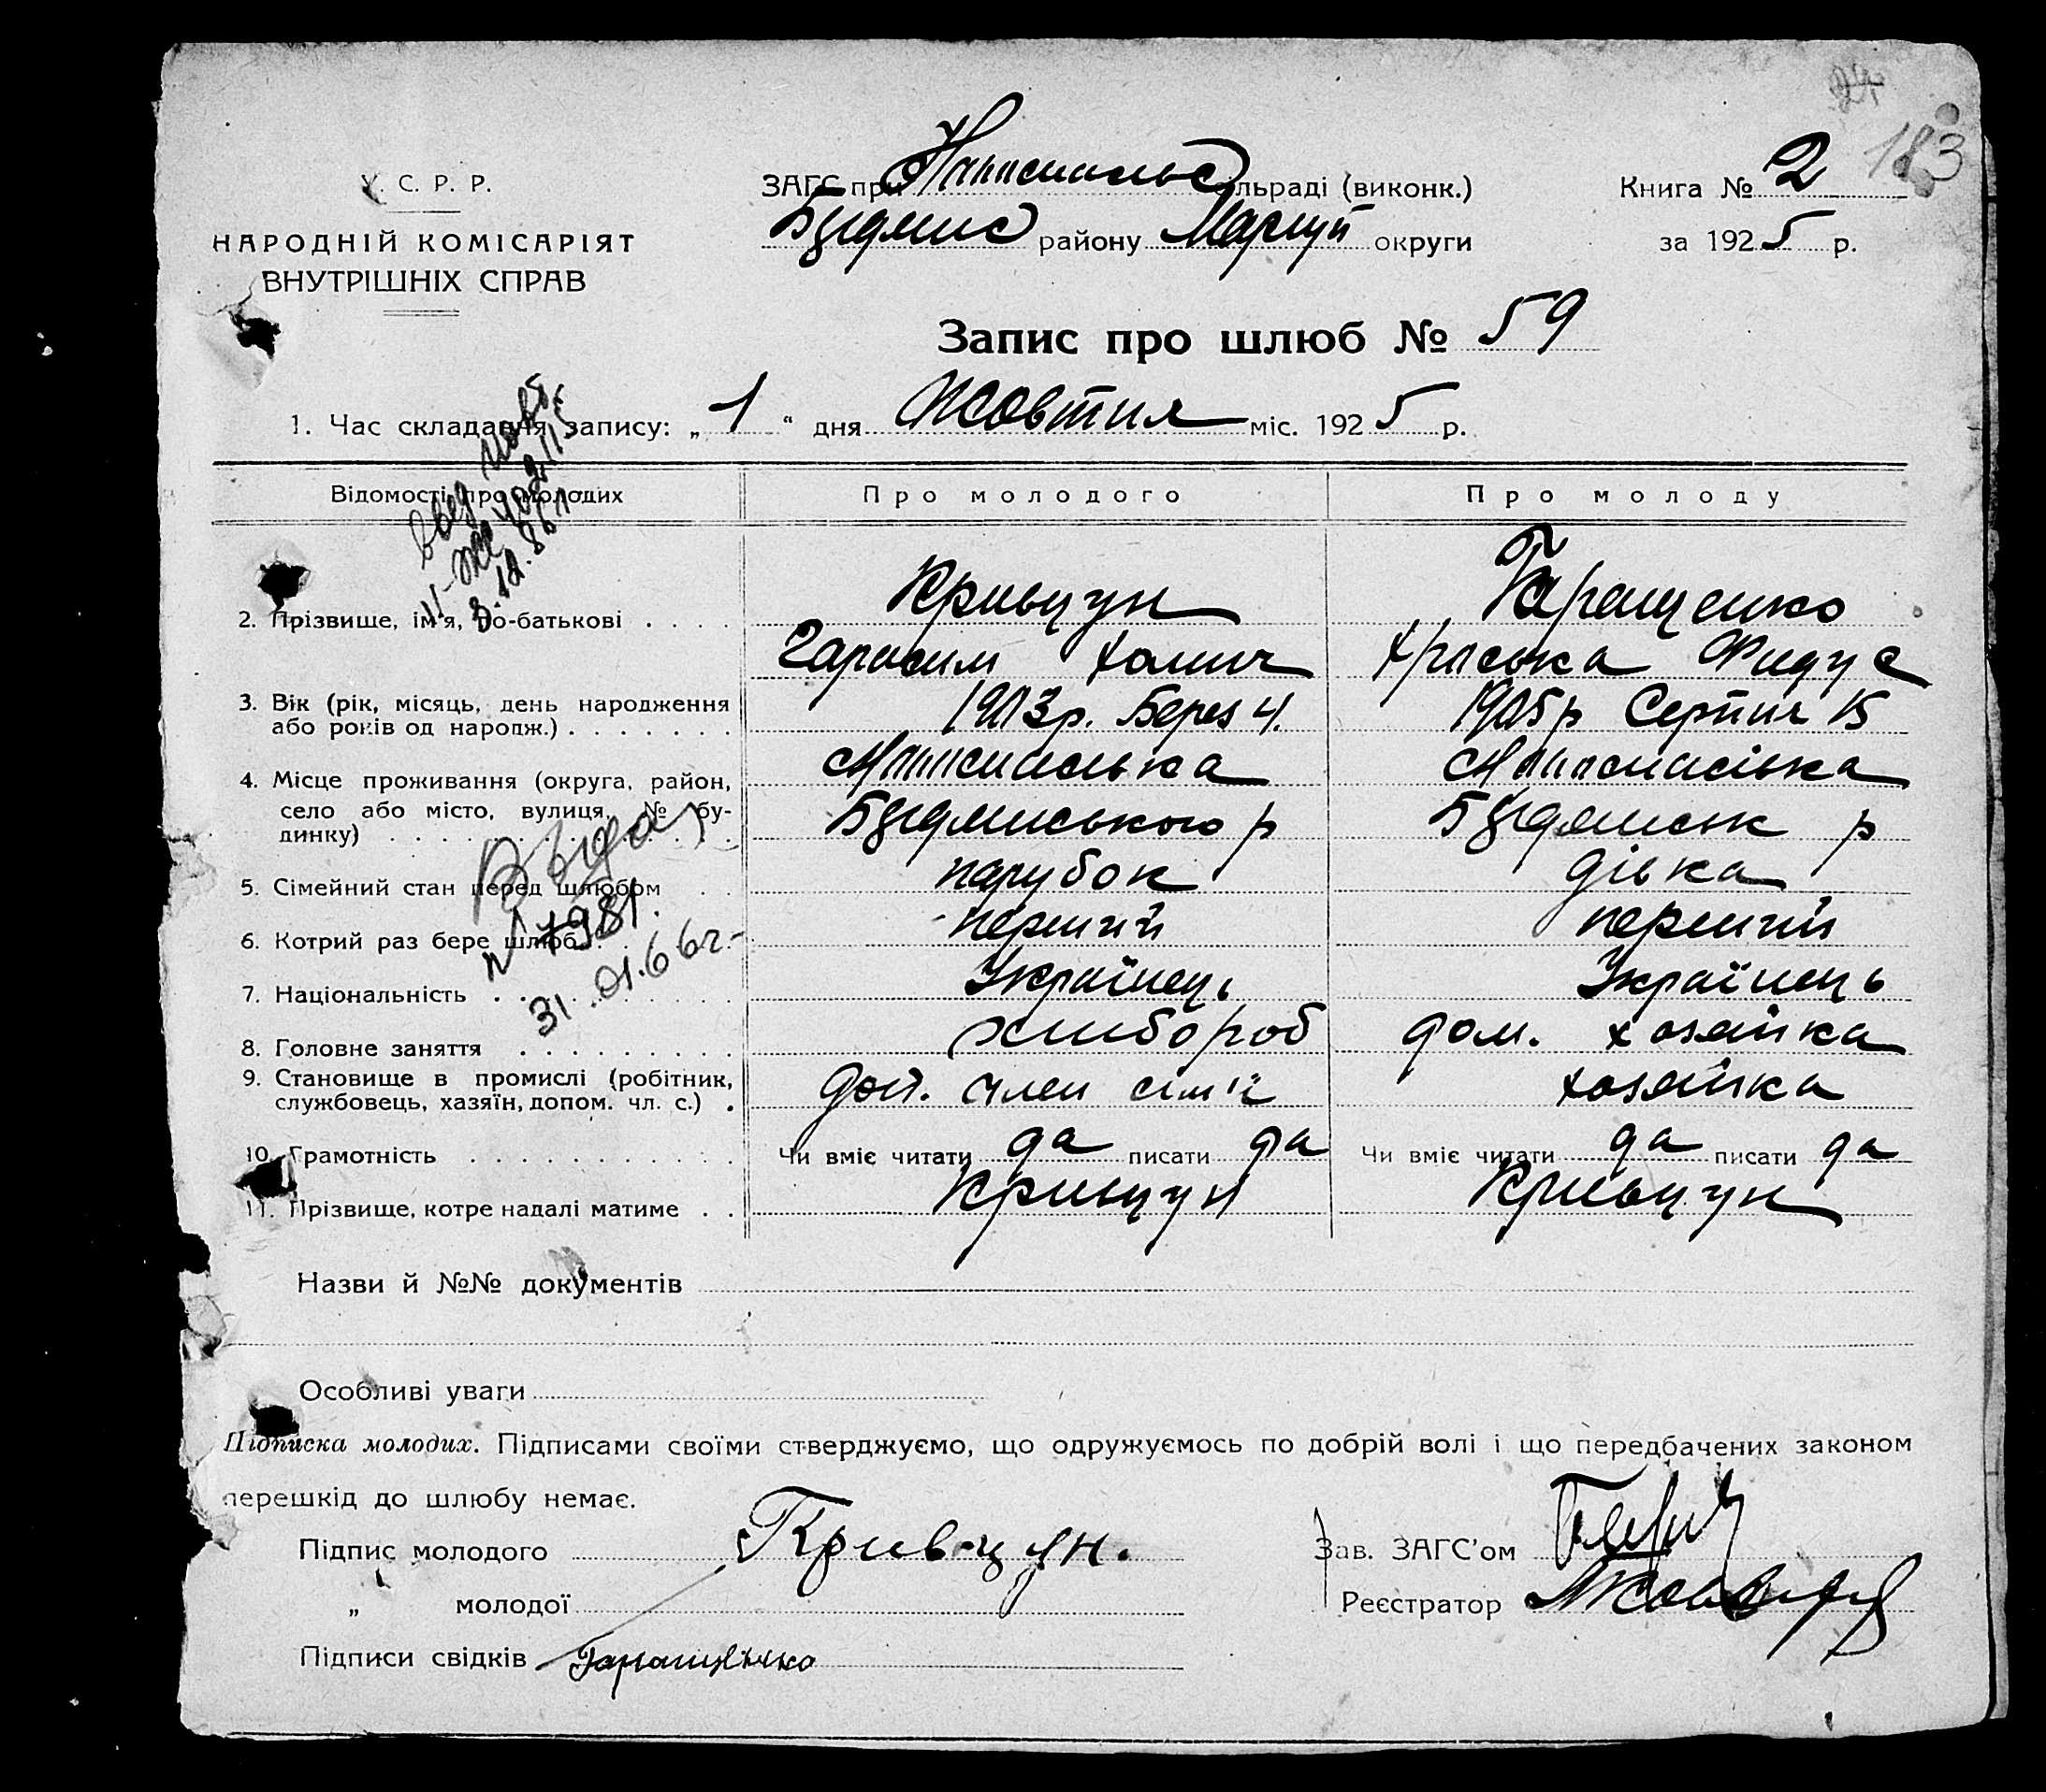 183
У. С. Р. Р.
НАРОДНІЙ КОМІСАРІЯТ
ВНУТРІШНІХ СПРАВ
ЗАГС при сільраді (виконк.)
району Маріуп округи
Книга № 2
за 1925 р.
Запис про шлюб № 59
1. Час складання запису: „ 1 “ дня Жовтня міс. 1925 р.
Відомості про молодих
Про молодого
Про молоду
2. Прізвище, ім'я, по-батькові
Кривцун
Таращенко
Гарасим Хомич
Хриська Федус
3. Вік (рік, місяць, день народження
або років од народж.)
1903р. Берез 4.
1905р Серпня 15
4. Місце проживання (округа, район,
село або місто, вулиця, № бу-
динку)
р
р
5. Сімейний стан перед шлюбом
парубок
дівка
6. Котрий раз бере шлюб
перший
перший
7. Національність
Українець
Українець
8. Головне заняття
хлибороб
дом. хозяйка
9. Становище в промислі (робітник,
службовець, хазяїн, допом. чл. с.)
доп. член сімї
хозяйка
10. Грамотність
Чи вміє читати да писати да
Чи вміє читати да писати да
11. Прізвище, котре надалі матиме
Кривцун
Кривцун
31.01.66г.
Назви й №№ документів
Особливі уваги
Підписка молодих. Підписами своїми стверджуємо, що одружуємось по добрій волі і що передбачених законом
перешкід до шлюбу немає.
Підпис молодого Кривцун.
„ молодої
Підписи свідків Таращенко
Зав. ЗАГС'ом
Реєстратор